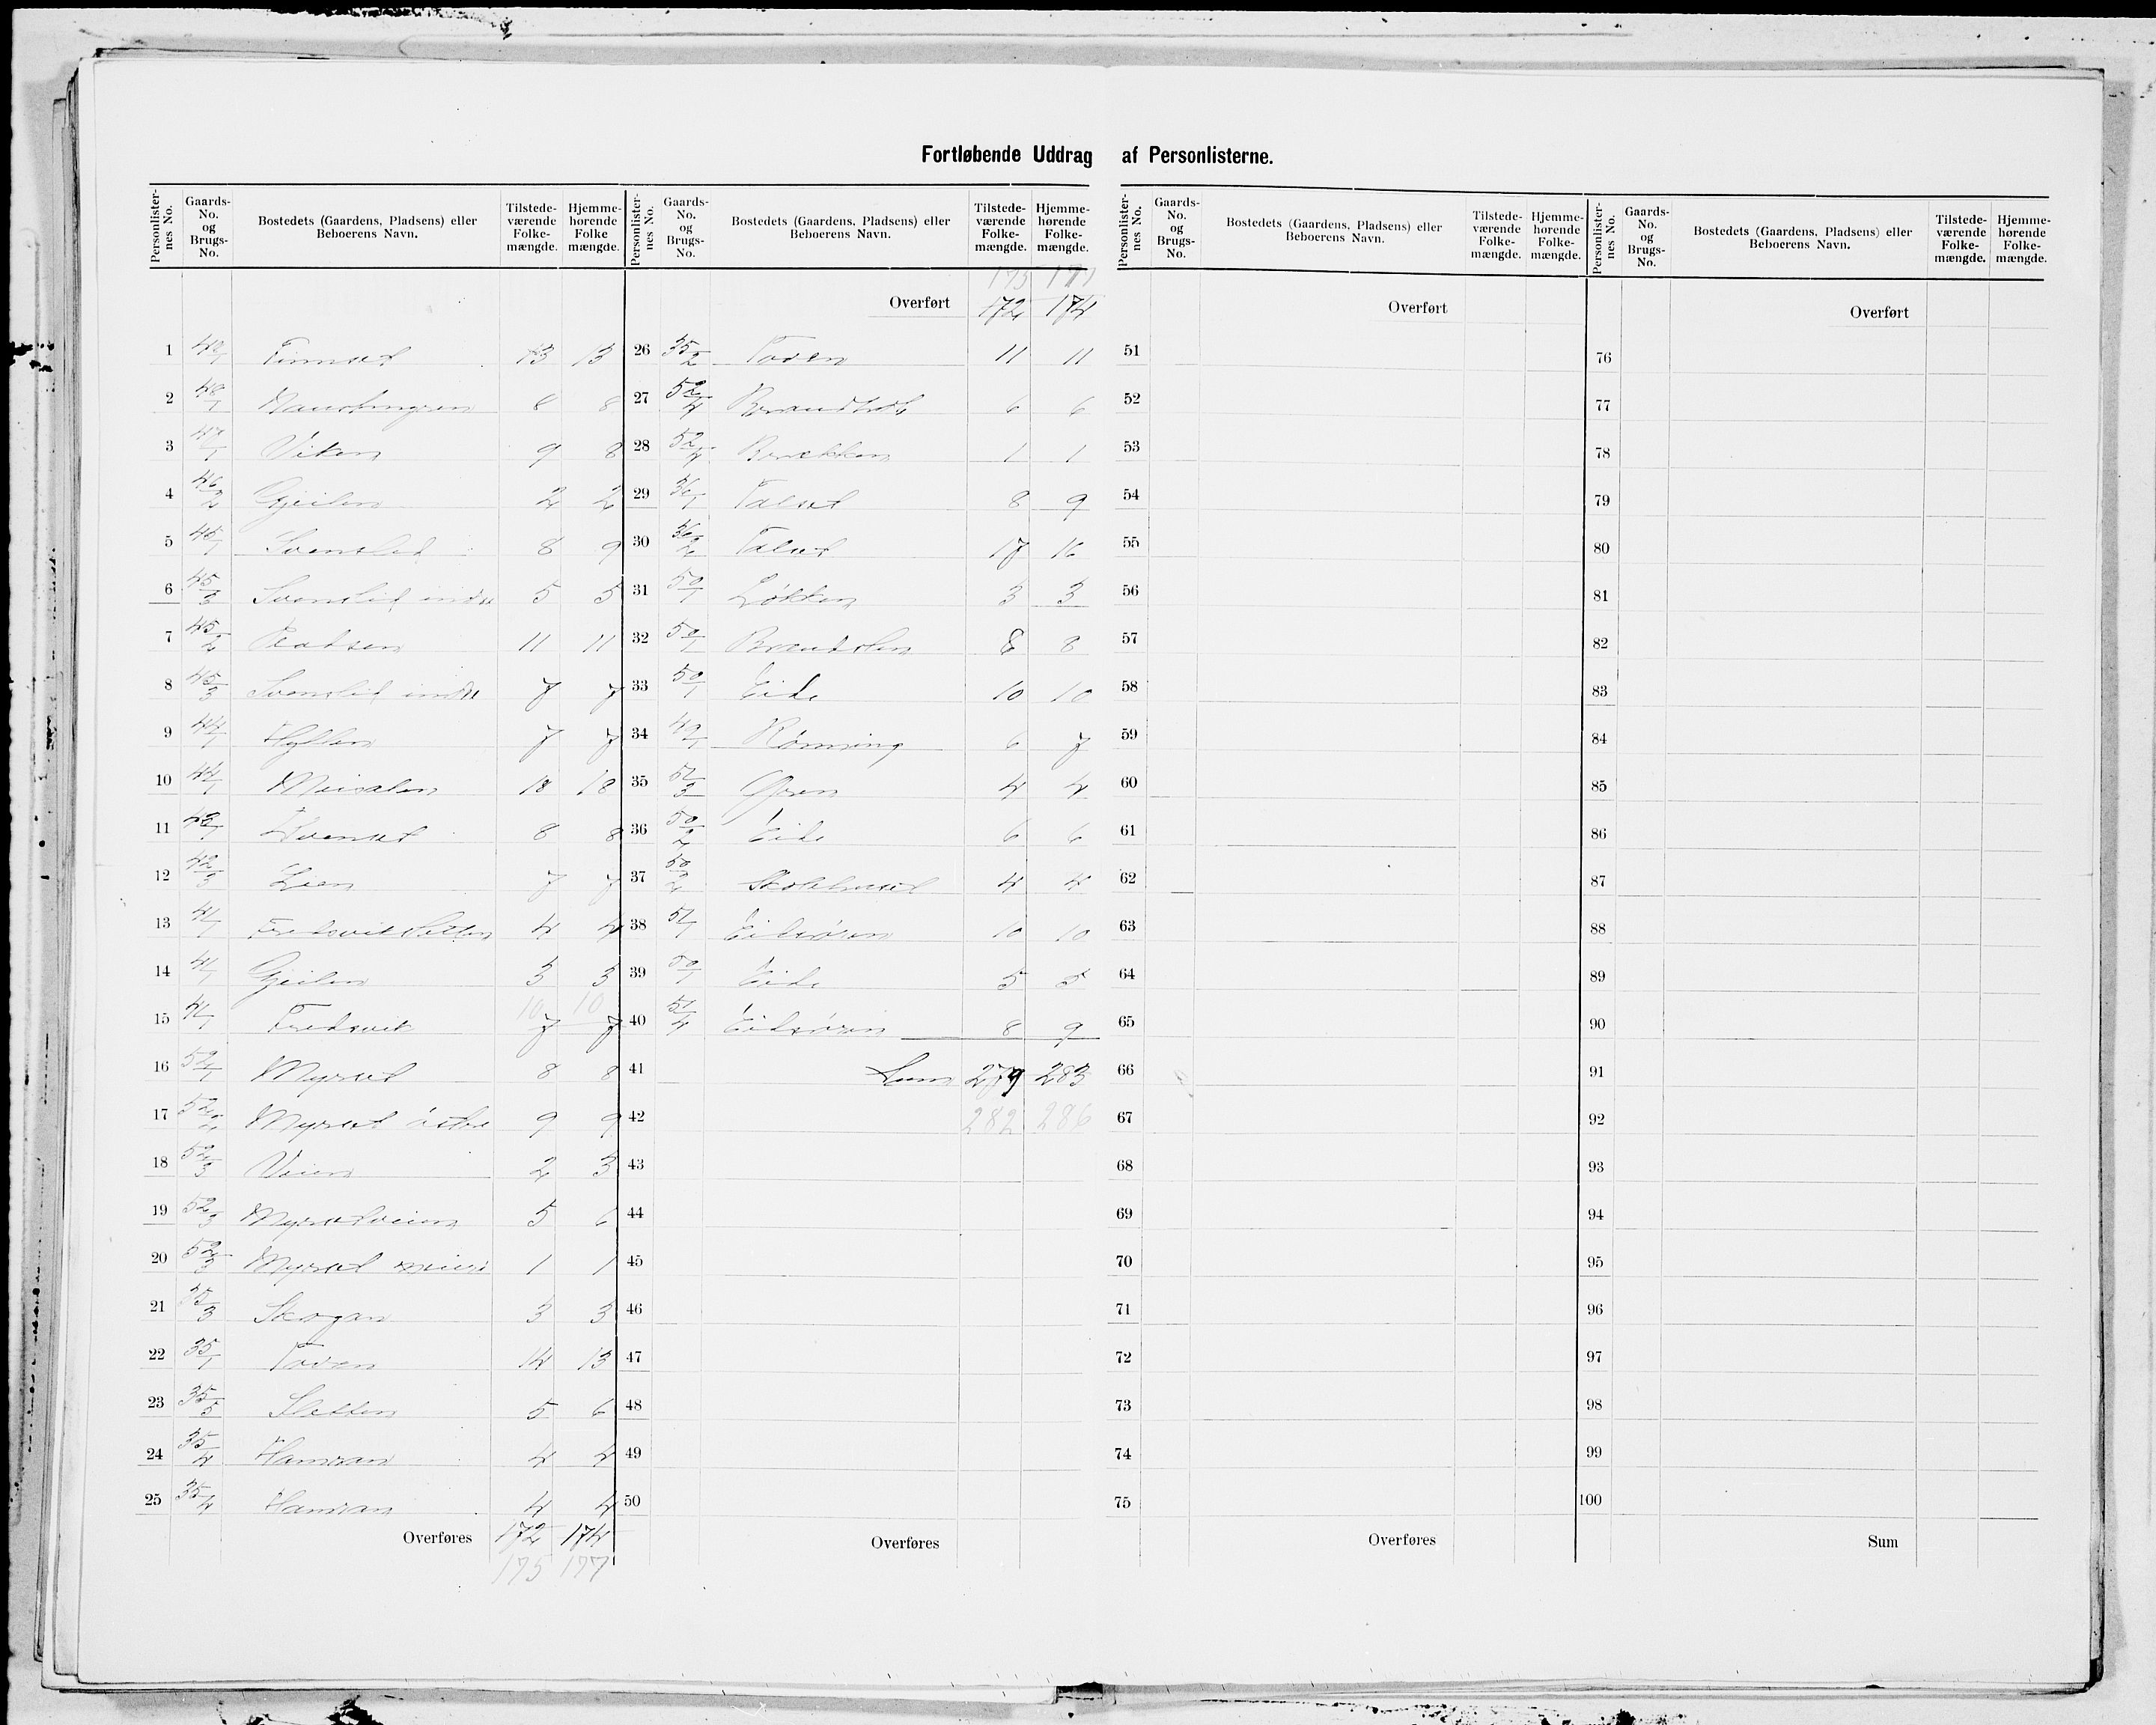 Fortløbende Uddrag af Personlisterne.
Personlisternes No. Gaards-No. og Brugs-No. Bostedets (Gaardens, Pladsens) eller Beboerens Navn. Tilstedeværende Folkemængde. Hjemmehørende Folkemængde.
1 Timset 13 13
2 48/1 8 8
3 47/1 Viken 9 8
4 46/2 Gjeilen 2 2
5 45/1 Svenslid 8 9
6 45/3 Svenslid indre 5 5
7 45/2 11 11
8 45/3 Svenslid indre 7 7
9 44/1 Hyllen 7 7
10 44/1 Meisalen 18 18
11 43/1 8 8
12 42/3 Lien 7 7
13 41/1 Fredsvik Sletten 4 4
14 41/1 Gjeilen 3 3
10 10
15 41/1 Fredsvik 7 7
16 52/1 Myrset 8 8
17 52/2 Myrset østre 9 9
18 52/3 Veien 2 3
19 52/3 Myrsetveien 5 6
20 52/3 Myrset 1 1
21 Skogan 3 3
22 35/1 Toven 14 13
23 35/5 Sletten 5 6
24 35/4 Hamran 4 4
25 35/4 Hamran 4 4
Overføres 172 174
175 177
Personlisternes No. Gaards-No. og Brugs-No. Bostedets (Gaardens, Pladsens) eller Beboerens Navn. Tilstedeværende Folkemængde. Hjemmehørende Folkemængde.
175 177
Overført 172 174
26 35/2 Toven 11 11
27 52/4 Brandhol 6 6
28 52/4 Brekken 1 1
29 36/1 Talset 8 9
30 36/2 Talset 17 16
31 50/1 Løkken 3 3
32 50/1 8 8
33 50/1 Eide 10 10
34 49/1 Rønning 6 7
35 51/3 Øren 4 4
36 50/2 Eide 6 6
37 50/2 Skolehuset 4 4
38 51/1 Eidsøren 10 10
39 50/1 Eide 5 5
40 51/4 Eidsøren 8 9
41 Sum 279 283
42 282 286
43
44
45
46
47
48
49
50
Overføres
Personlisternes No. Gaards-No. og Brugs-No. Bostedets (Gaardens, Pladsens) eller Beboerens Navn. Tilstedeværende Folkemængde. Hjemmehørende Folkemængde.
Overført
51
52
53
54
55
56
57
58
59
60
61
62
63
64
65
66
67
68
69
70
71
72
73
74
75
Overføres
Personlisternes No. Gaards-No. og Brugs-No. Bostedets (Gaardens, Pladsens) eller Beboerens Navn. Tilstedeværende Folkemængde. Hjemmehørende Folkemængde.
Overført
76
77
78
79
80
81
82
83
84
85
86
87
88
89
90
91
92
93
94
95
96
97
98
99
100
Sum